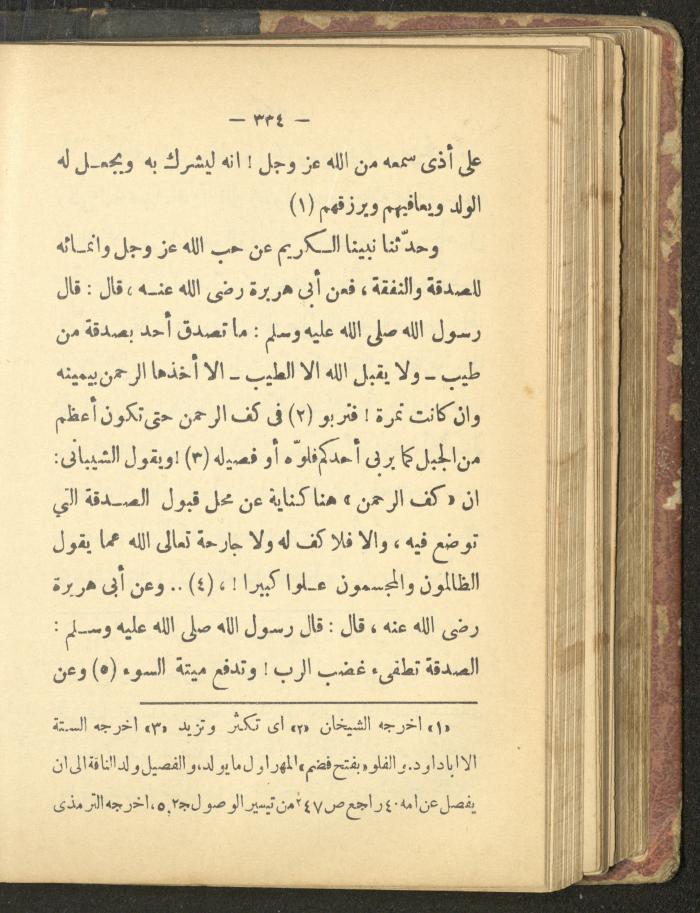 — ٣٣٤ —
على أذى سمعه من الله عز وجل ! انه ليشرك به ويجعـل له
الولد ويعافيهم ويرزقهم (١)
وحدّثنا نبينا الـكريم عن حب الله عز وجل وانمـائه
للصدقة والنفقة ، فعن أبى هريرة رضى الله عنـه ، قال : قال
رسول الله صلى الله عليه وسلم : ما تصدق أحد بصدقة من
طيب ـ ولا يقبل الله الا الطيب ـ الا أخذها الرحمن بيمينه
وان كانت تمرة ! فتربو (٢) فى كف الرحمن حتى تكون أعظم
من الجبل كما يربى أحدكم فلوّه أو فصيله (٣) ! ويقول الشيبانى :
ان « كف الرحمن » هنا كناية عن محل قبول الصـدقة التي
توضع فيه ، والا فلا كف له ولا جارحة تعالى الله عما يقول
الظالمون والمجسمون عـلوا كبيرا ! ، (٤) .. وعن أبى هريرة
رضى الله عنه ، قال : قال رسول الله صلى الله عليه وسـلم :
الصدقة تطفىء غضب الرب ! وتدفع ميتة السوء (٥) وعن
«١» اخرجه الشيخان «٢» اى تكثر وتزيد «٣» اخرجه الستة
الا اباداود . والفلو « بفتح فضم » المهر اول ما يولد ، والفصيل ولد الناقة الى ان
يفصل عن امه ٤٠ راجع ص ٢٤٧ من تيسير الوصول جـ ٢ ، ٥ ، اخرجه الترمذى